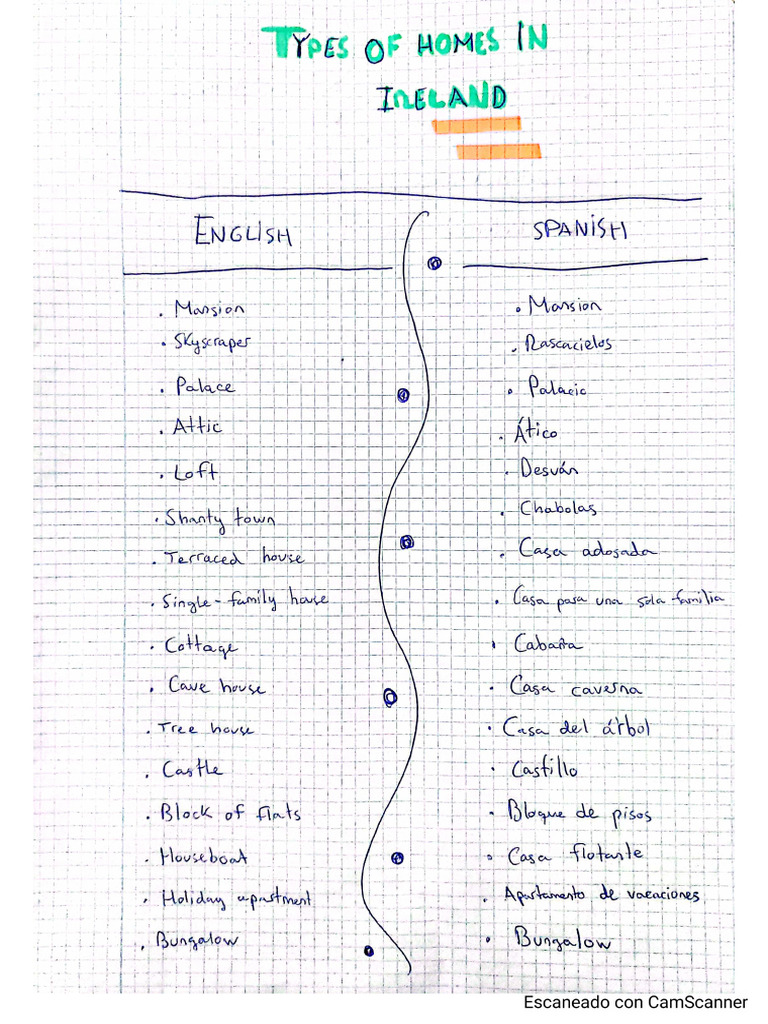 TYPES OF HOMES IN
IRELAND
ENGLISH
SPANISH
. Mansion
. Mansion
. Skyscraper
. Rascacielos
. Palace
. Palacio
. Attic
. Ático
. Loft
. Desván
. Shanty town
. Chabolas
. Terraced house
. Casa adosada
. Single-family house
. Casa para una sola familia
. Cottage
. Cabaña
. Cave house
. Casa caverna
. Tree house
. Casa del árbol
. Castle
. Castillo
. Block of flats
. Bloque de pisos
. Houseboat
. Casa flotante
. Holiday apartment
. Apartamento de vacaciones
. Bungalow
. Bungalow
Escaneado con CamScanner